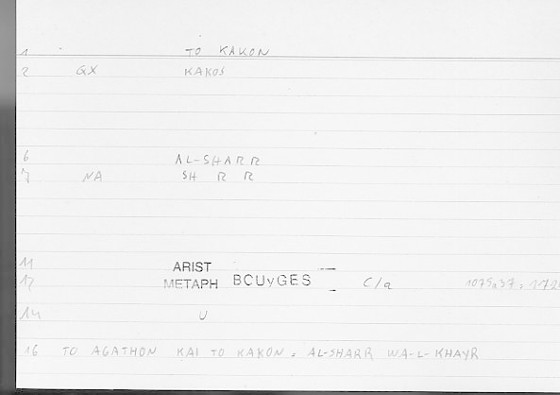 1 TO KAKON
2 GX KAKOS
6 AL-SHARR
7 NA SH R R
11 ARIST
12 METAPH BCUyGES C/a 1075a37,
14 U
16 TO AGATHON KAI TO KAKON, AL-SHARR WA-L-KHAYR